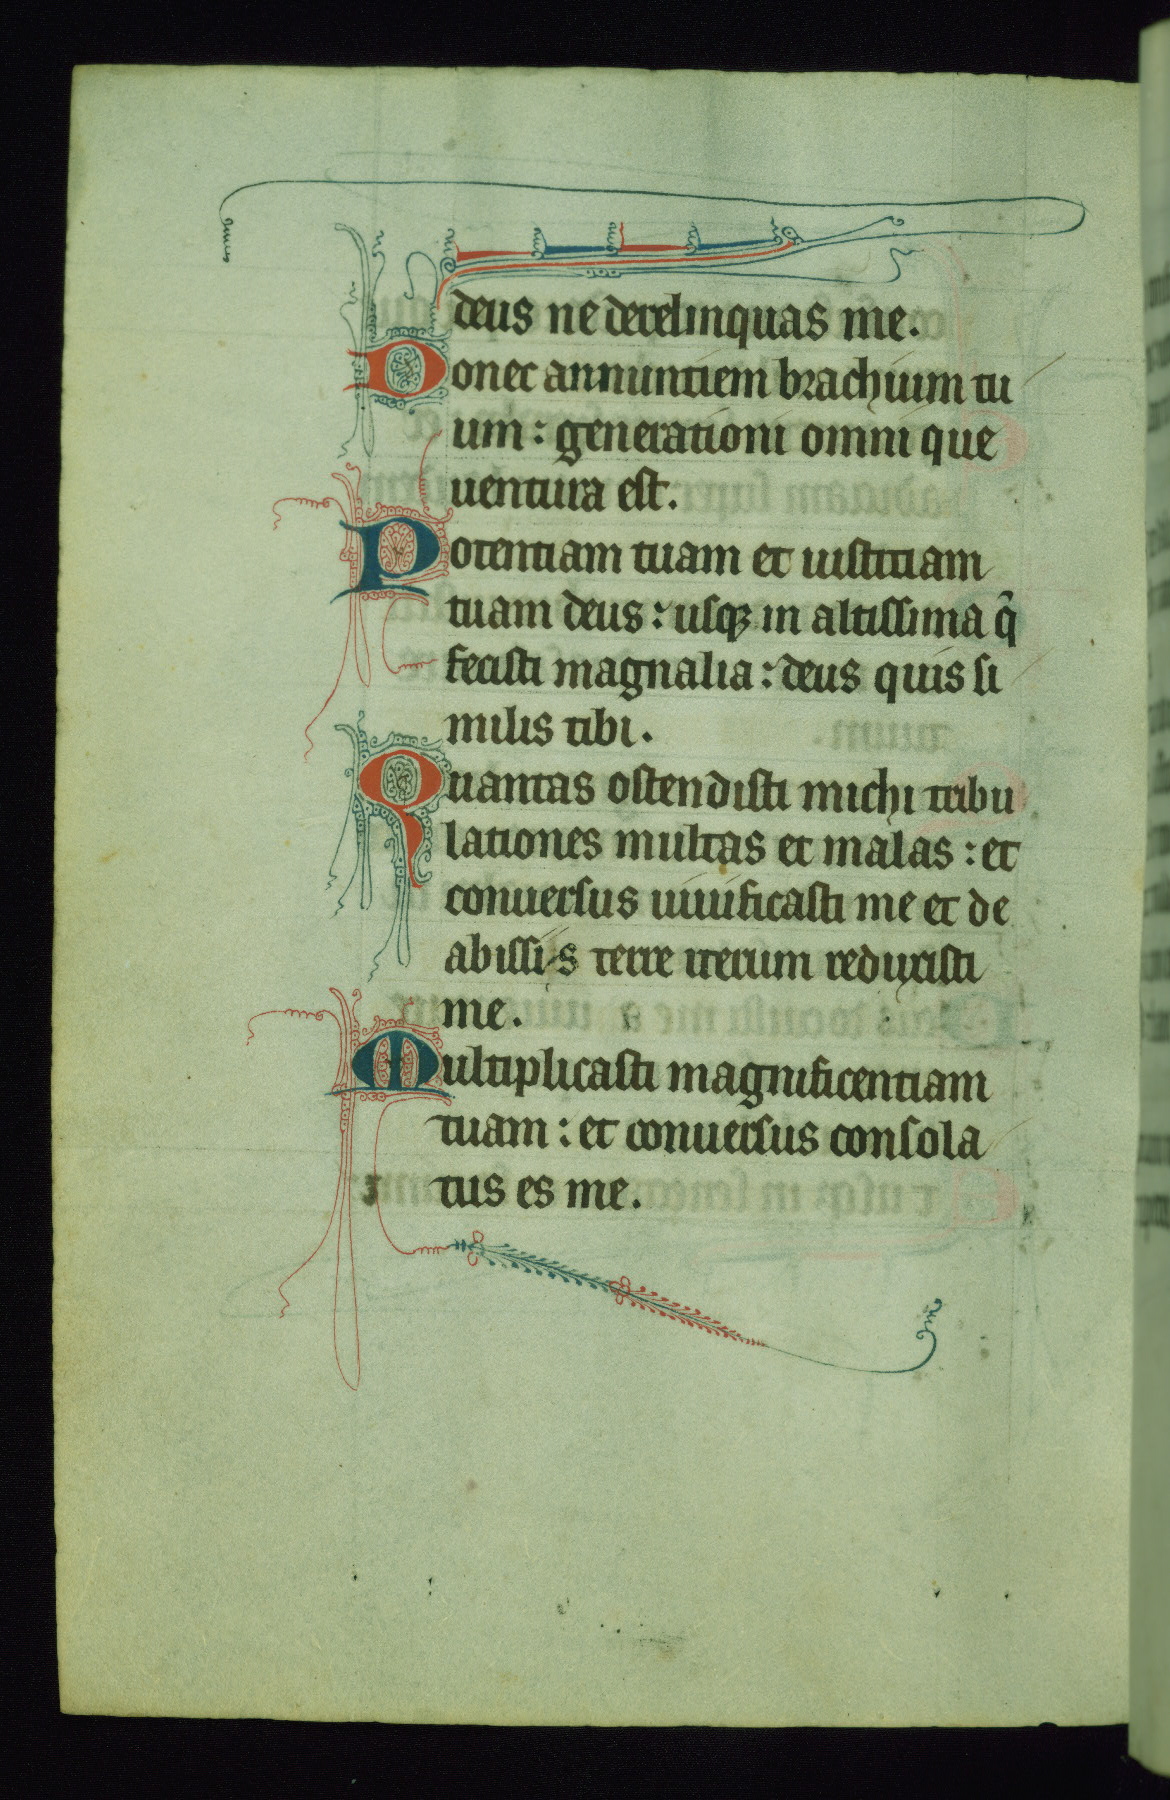 deus ne derelinquas me.
Donec annuntiem brachium tu
um: generationi omni que
uentura est.
Potentiam tuam et iustitiam
tuam deus: usqꝫ in altissima q̃
fecisti magnalia: deus quis si
milis tibi.
Quantas ostendisti michi tribu
lationes multas et malas: et
conuersus uiuificasti me et de
abissis terre iterum reduxisti
me.
Multiplicasti magnificentiam
tuam: et conuersus consola
tus es me.